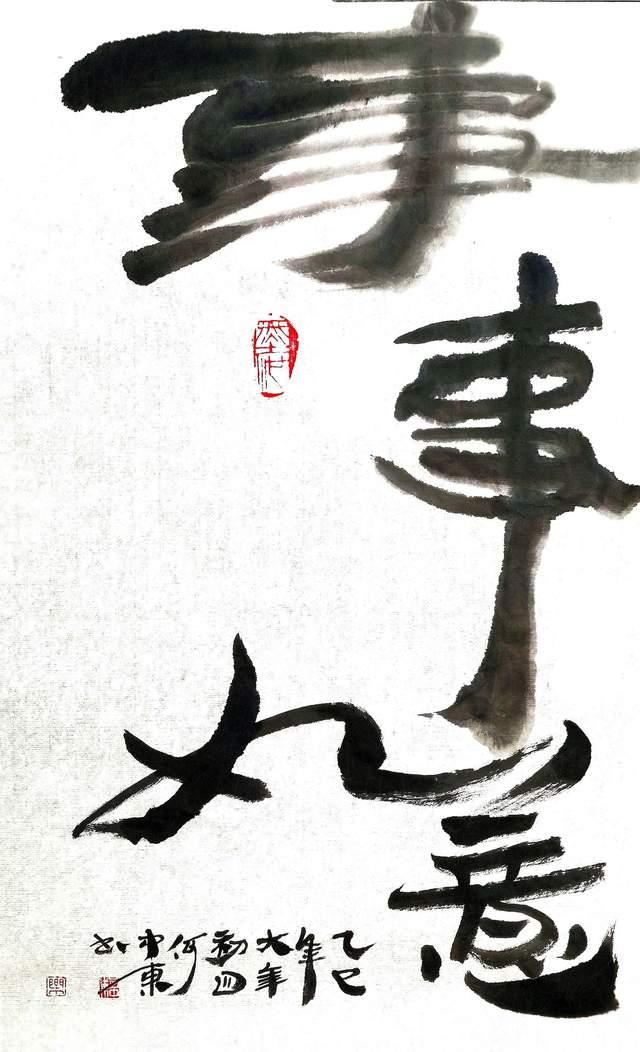 事事如意
乙巳年大年初四何東书